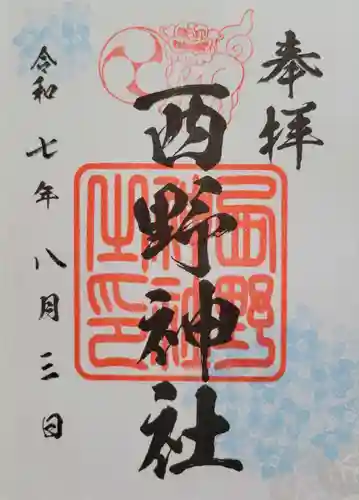 奉拝
西野神社
西野神社之印
令和七年八月三日